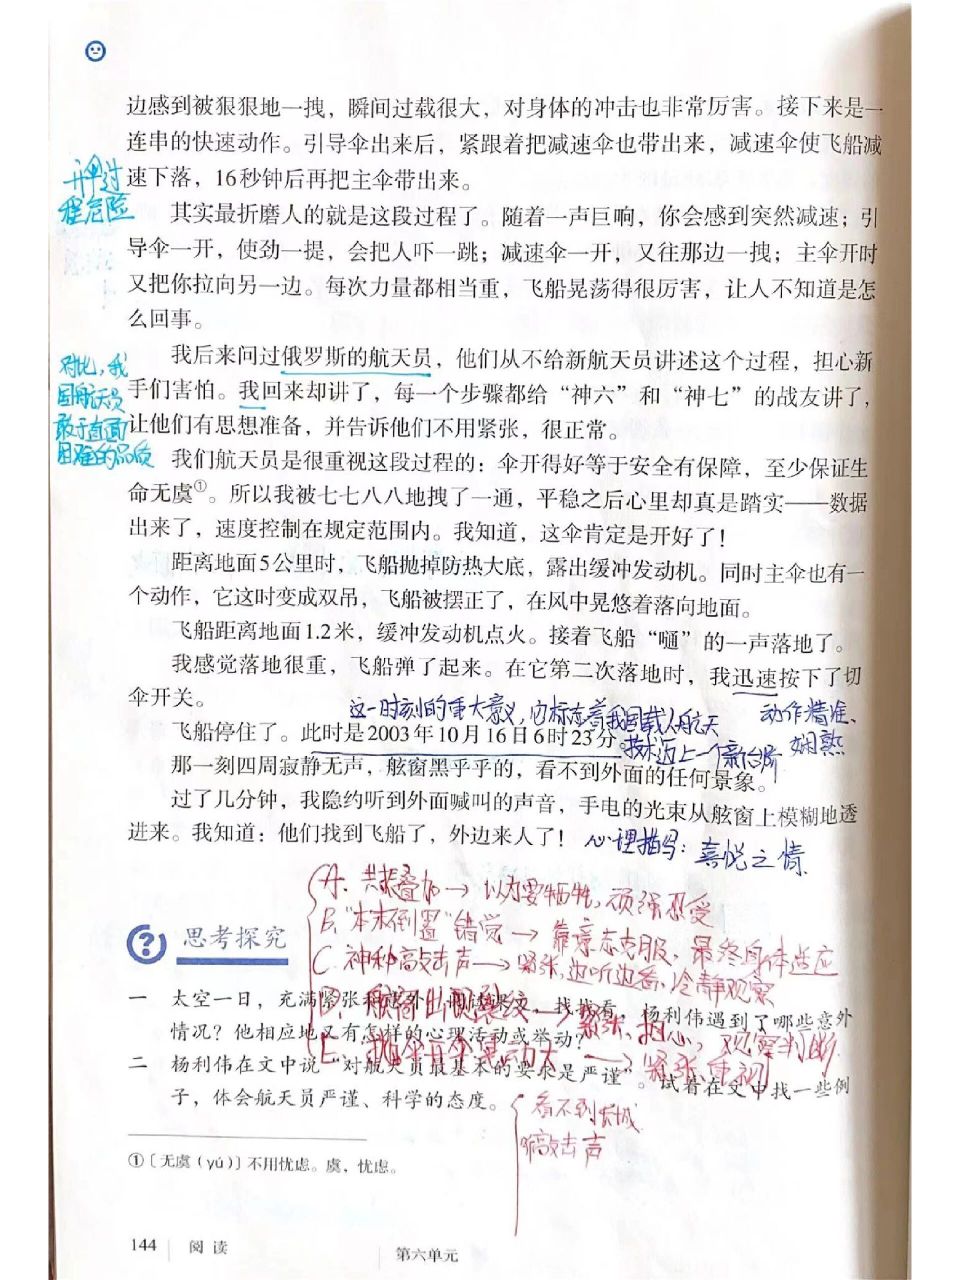 边感到被狠狠地一拽，瞬间过载很大，对身体的冲击也非常厉害。接下来是一
连串的快速动作。引导伞出来后，紧跟着把减速伞也带出来，减速伞使飞船减
速下落，16秒钟后再把主伞带出来。
开伞过
程危险
其实最折磨人的就是这段过程了。随着一声巨响，你会感到突然减速；引
导伞一开，使劲一提，会把人吓一跳；减速伞一开，又往那边一拽；主伞开时
又把你拉向另一边。每次力量都相当重，飞船晃荡得很厉害，让人不知道是怎
么回事。
我后来问过俄罗斯的航天员，他们从不给新航天员讲述这个过程，担心新
手们害怕。我回来却讲了，每一个步骤都给“神六”和“神七”的战友讲了，
让他们有思想准备，并告诉他们不用紧张，很正常。
对比，我
国航天员
敢于直面
困难的品质
我们航天员是很重视这段过程的：伞开得好等于安全有保障，至少保证生
命无虞①。所以我被七七八八地拽了一通，平稳之后心里却真是踏实——数据
出来了，速度控制在规定范围内。我知道，这伞肯定是开好了！
距离地面5公里时，飞船抛掉防热大底，露出缓冲发动机。同时主伞也有一
个动作，它这时变成双吊，飞船被摆正了，在风中晃悠着落向地面。
飞船距离地面1.2米，缓冲发动机点火。接着飞船“嗵”的一声落地了。
我感觉落地很重，飞船弹了起来。在它第二次落地时，我迅速按下了切
伞开关。
这一时刻的重大意义，它标志着我国载人航天
技术迈上一个新台阶
动作精准、
娴熟
飞船停住了。此时是2003年10月16日6时23分。
那一刻四周寂静无声，舷窗黑乎乎的，看不到外面的任何景象。
过了几分钟，我隐约听到外面喊叫的声音，手电的光束从舷窗上模糊地透
进来。我知道：他们找到飞船了，外边来人了！
心理描写：喜悦之情
A、共振叠加→以为要牺牲，顽强忍受
B、“本末倒置”错觉→靠意志克服，最终身体适应
C、神秘敲击声→紧张，边听边看，冷静观察
D、舷窗出现裂纹→紧张、担心，观察判断
E、抛伞开伞晃动大→紧张，重视
思考探究
一 太空一日，充满紧张和意外。阅读课文，找找看，杨利伟遇到了哪些意外
情况？他相应地又有怎样的心理活动或举动？
二 杨利伟在文中说“对航天员最基本的要求是严谨”。试着在文中找一些例
子，体会航天员严谨、科学的态度。
看不到长城
敲击声
①〔无虞（yú）〕不用忧虑。虞，忧虑。
144 阅读
第六单元